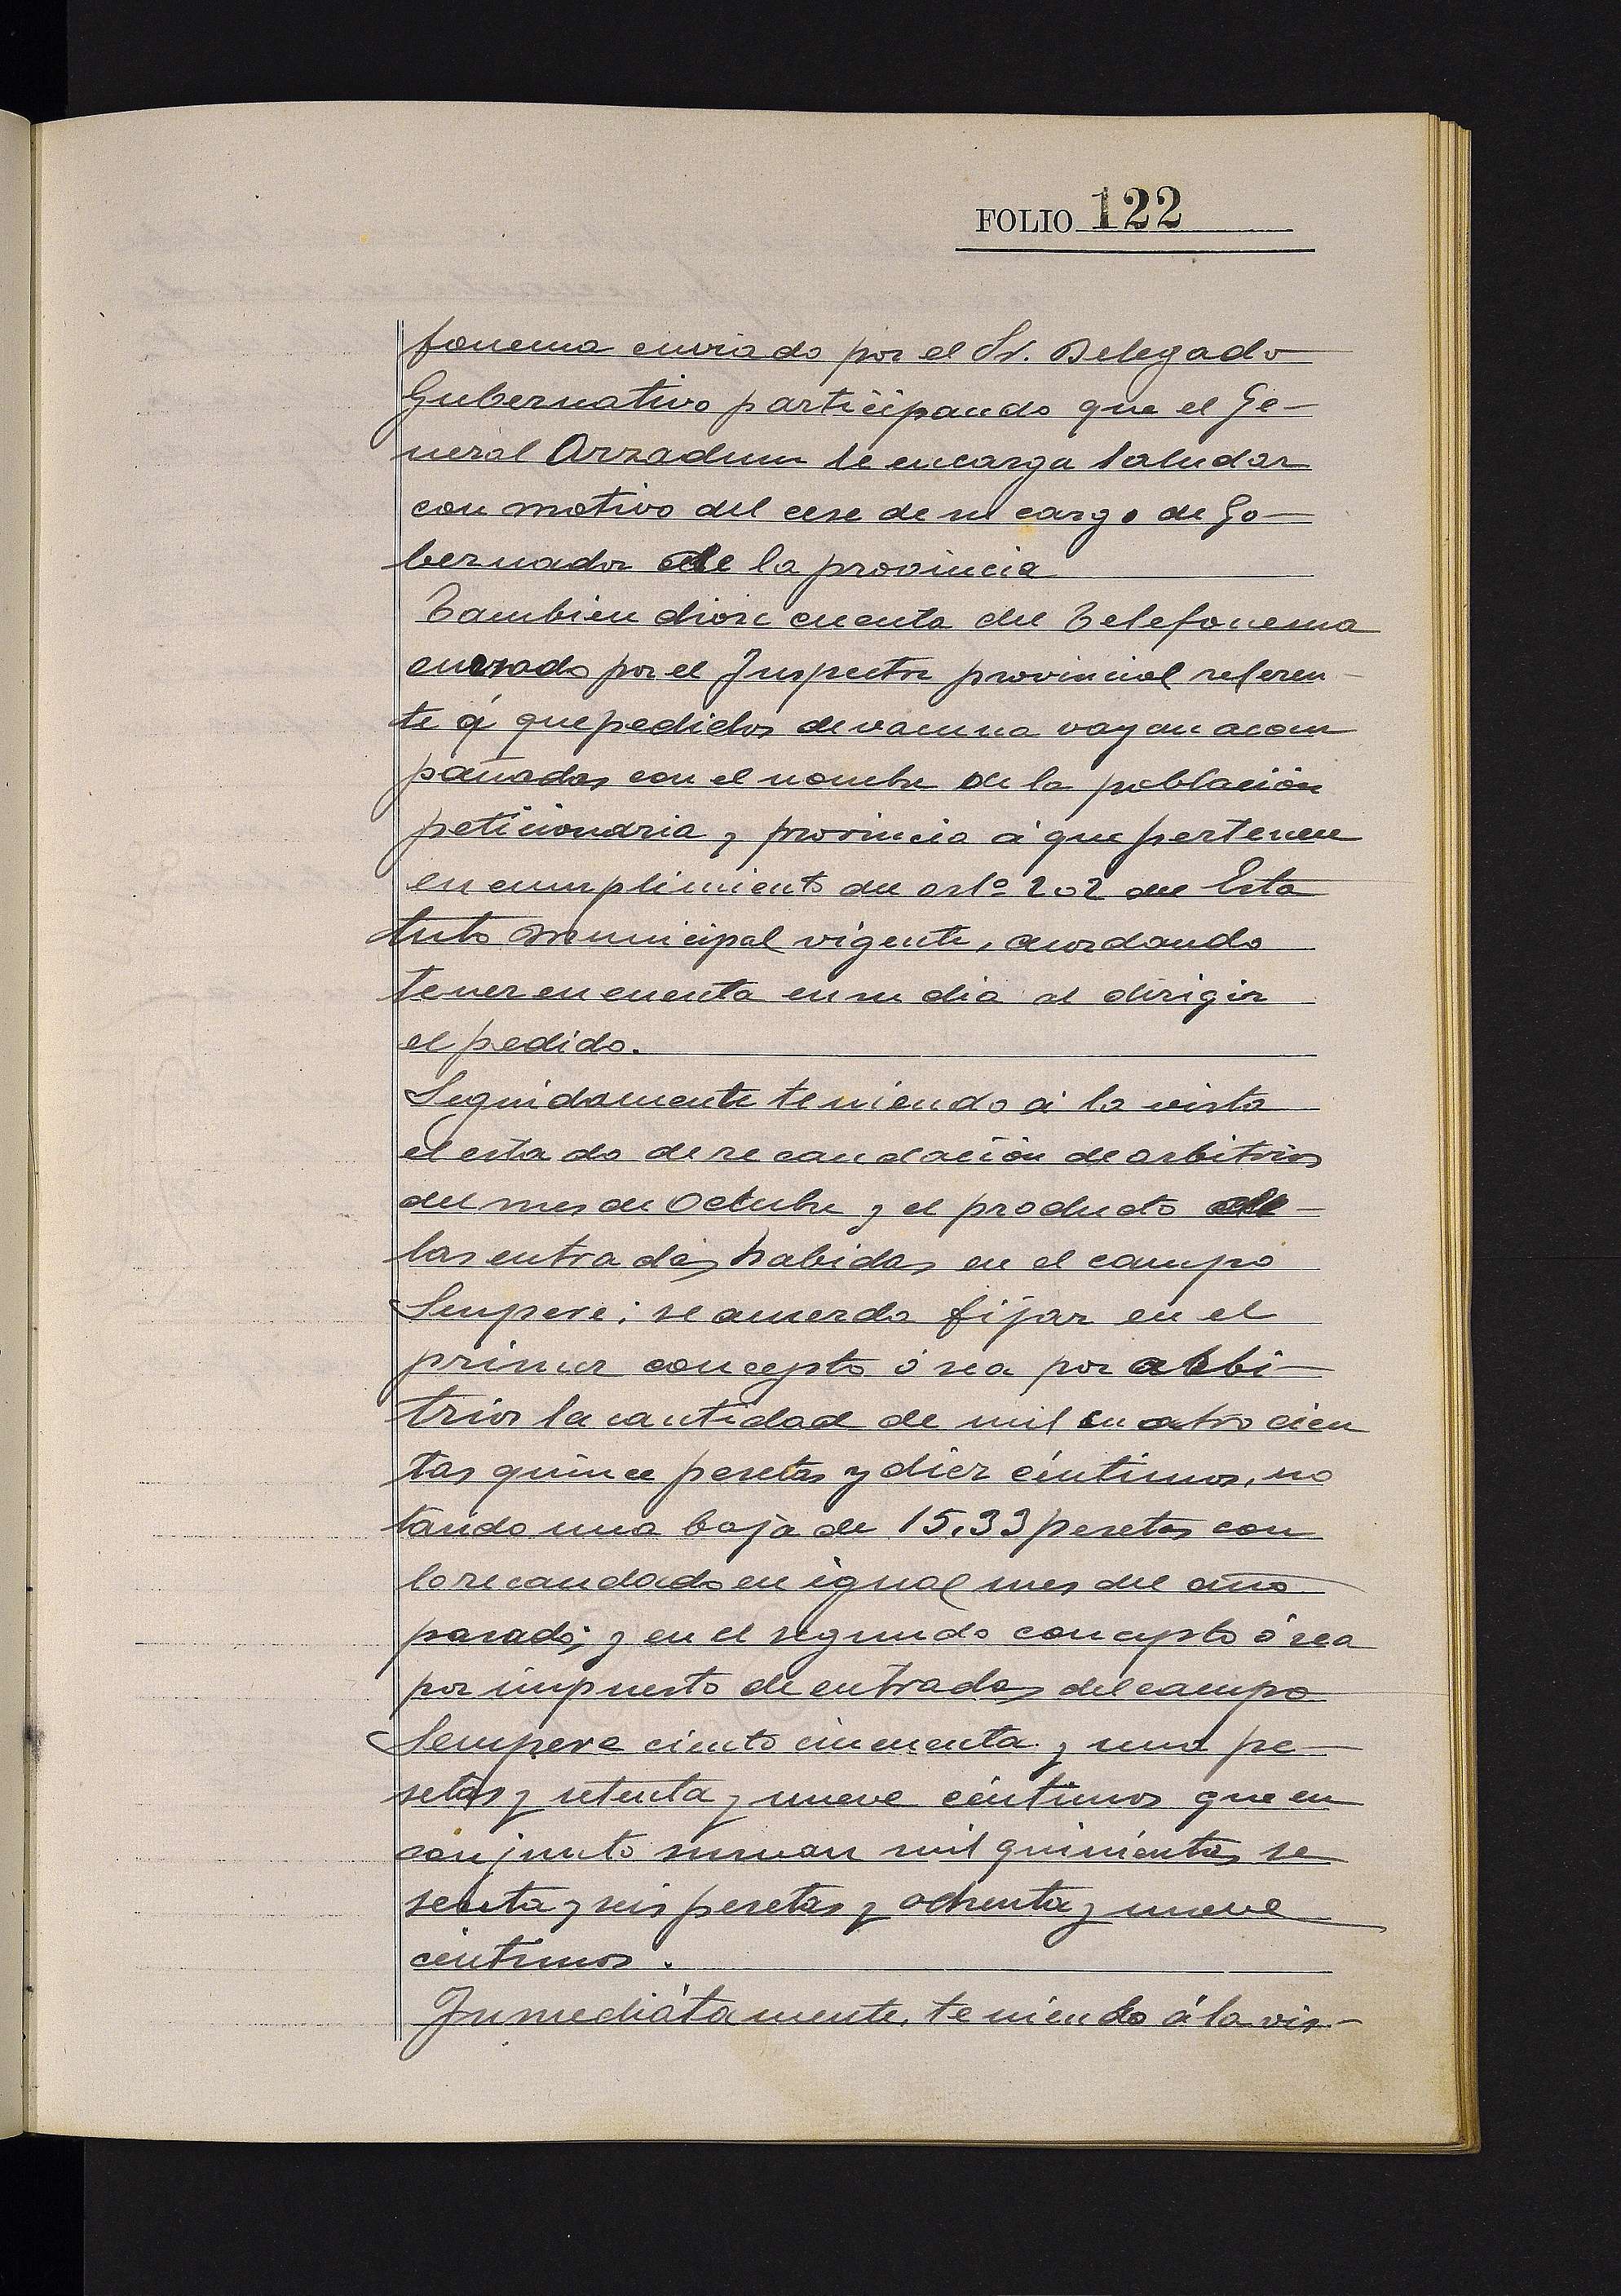 FOLIO 122
fonema enviado por el Sr. Delegado
Gubernativo participando que el Ge-
neral Arzadun le encarga saludar
con motivo del cese de su cargo de Go-
bernador de la provincia
Tambien diose cuenta del Telefonema
enviado por el Inspector provincial referen-
te á que pedidos de vacuna vayan acom
pañados con el nombre de la población
peticionaria y provincia á que pertenece
en cumplimiento del artº 202 del Esta
tuto Municipal vigente, acordando
tener en cuenta en su dia al dirigir
el pedido.
Seguidamente teniendo á la vista
el estado de recaudación de arbitrios
del mes de Octubre y el producto de
las entradas habidas en el campo
Sempere; se acuerda fijar en el
primer concepto ó sea por arbi-
trios la cantidad de mil cuatrocien
tas quince pesetas y diez céntimos, no
tando una baja de 15,33 pesetas con
lo recaudado en igual mes del año
pasado; y en el segundo concepto ó sea
por impuesto de entradas del campo
Sempere ciento cincuenta y una pe-
setas y setenta y nueve céntimos que en
conjunto suman mil quinientas se
senta y seis pesetas y ochenta y nueve
céntimos.
Inmediátamente, teniendo á la vis-